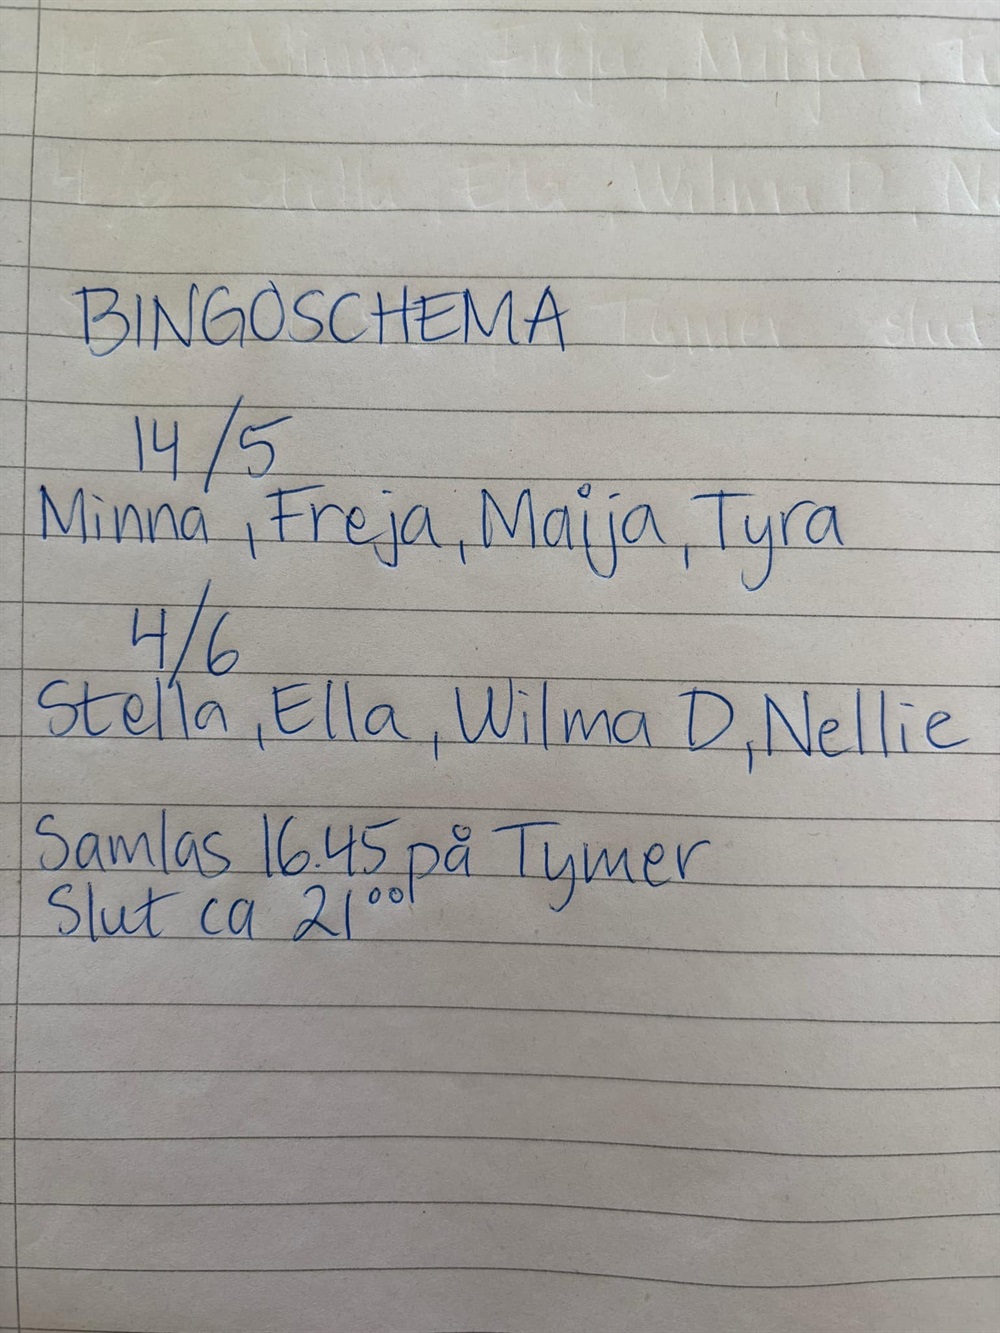 BINGOSCHEMA
14/5
Minna, Freja, Maija, Tyra
4/6
Stella, Ella, Wilma D, Nellie
Samlas 16.45 på Tymer
Slut ca 21⁰⁰